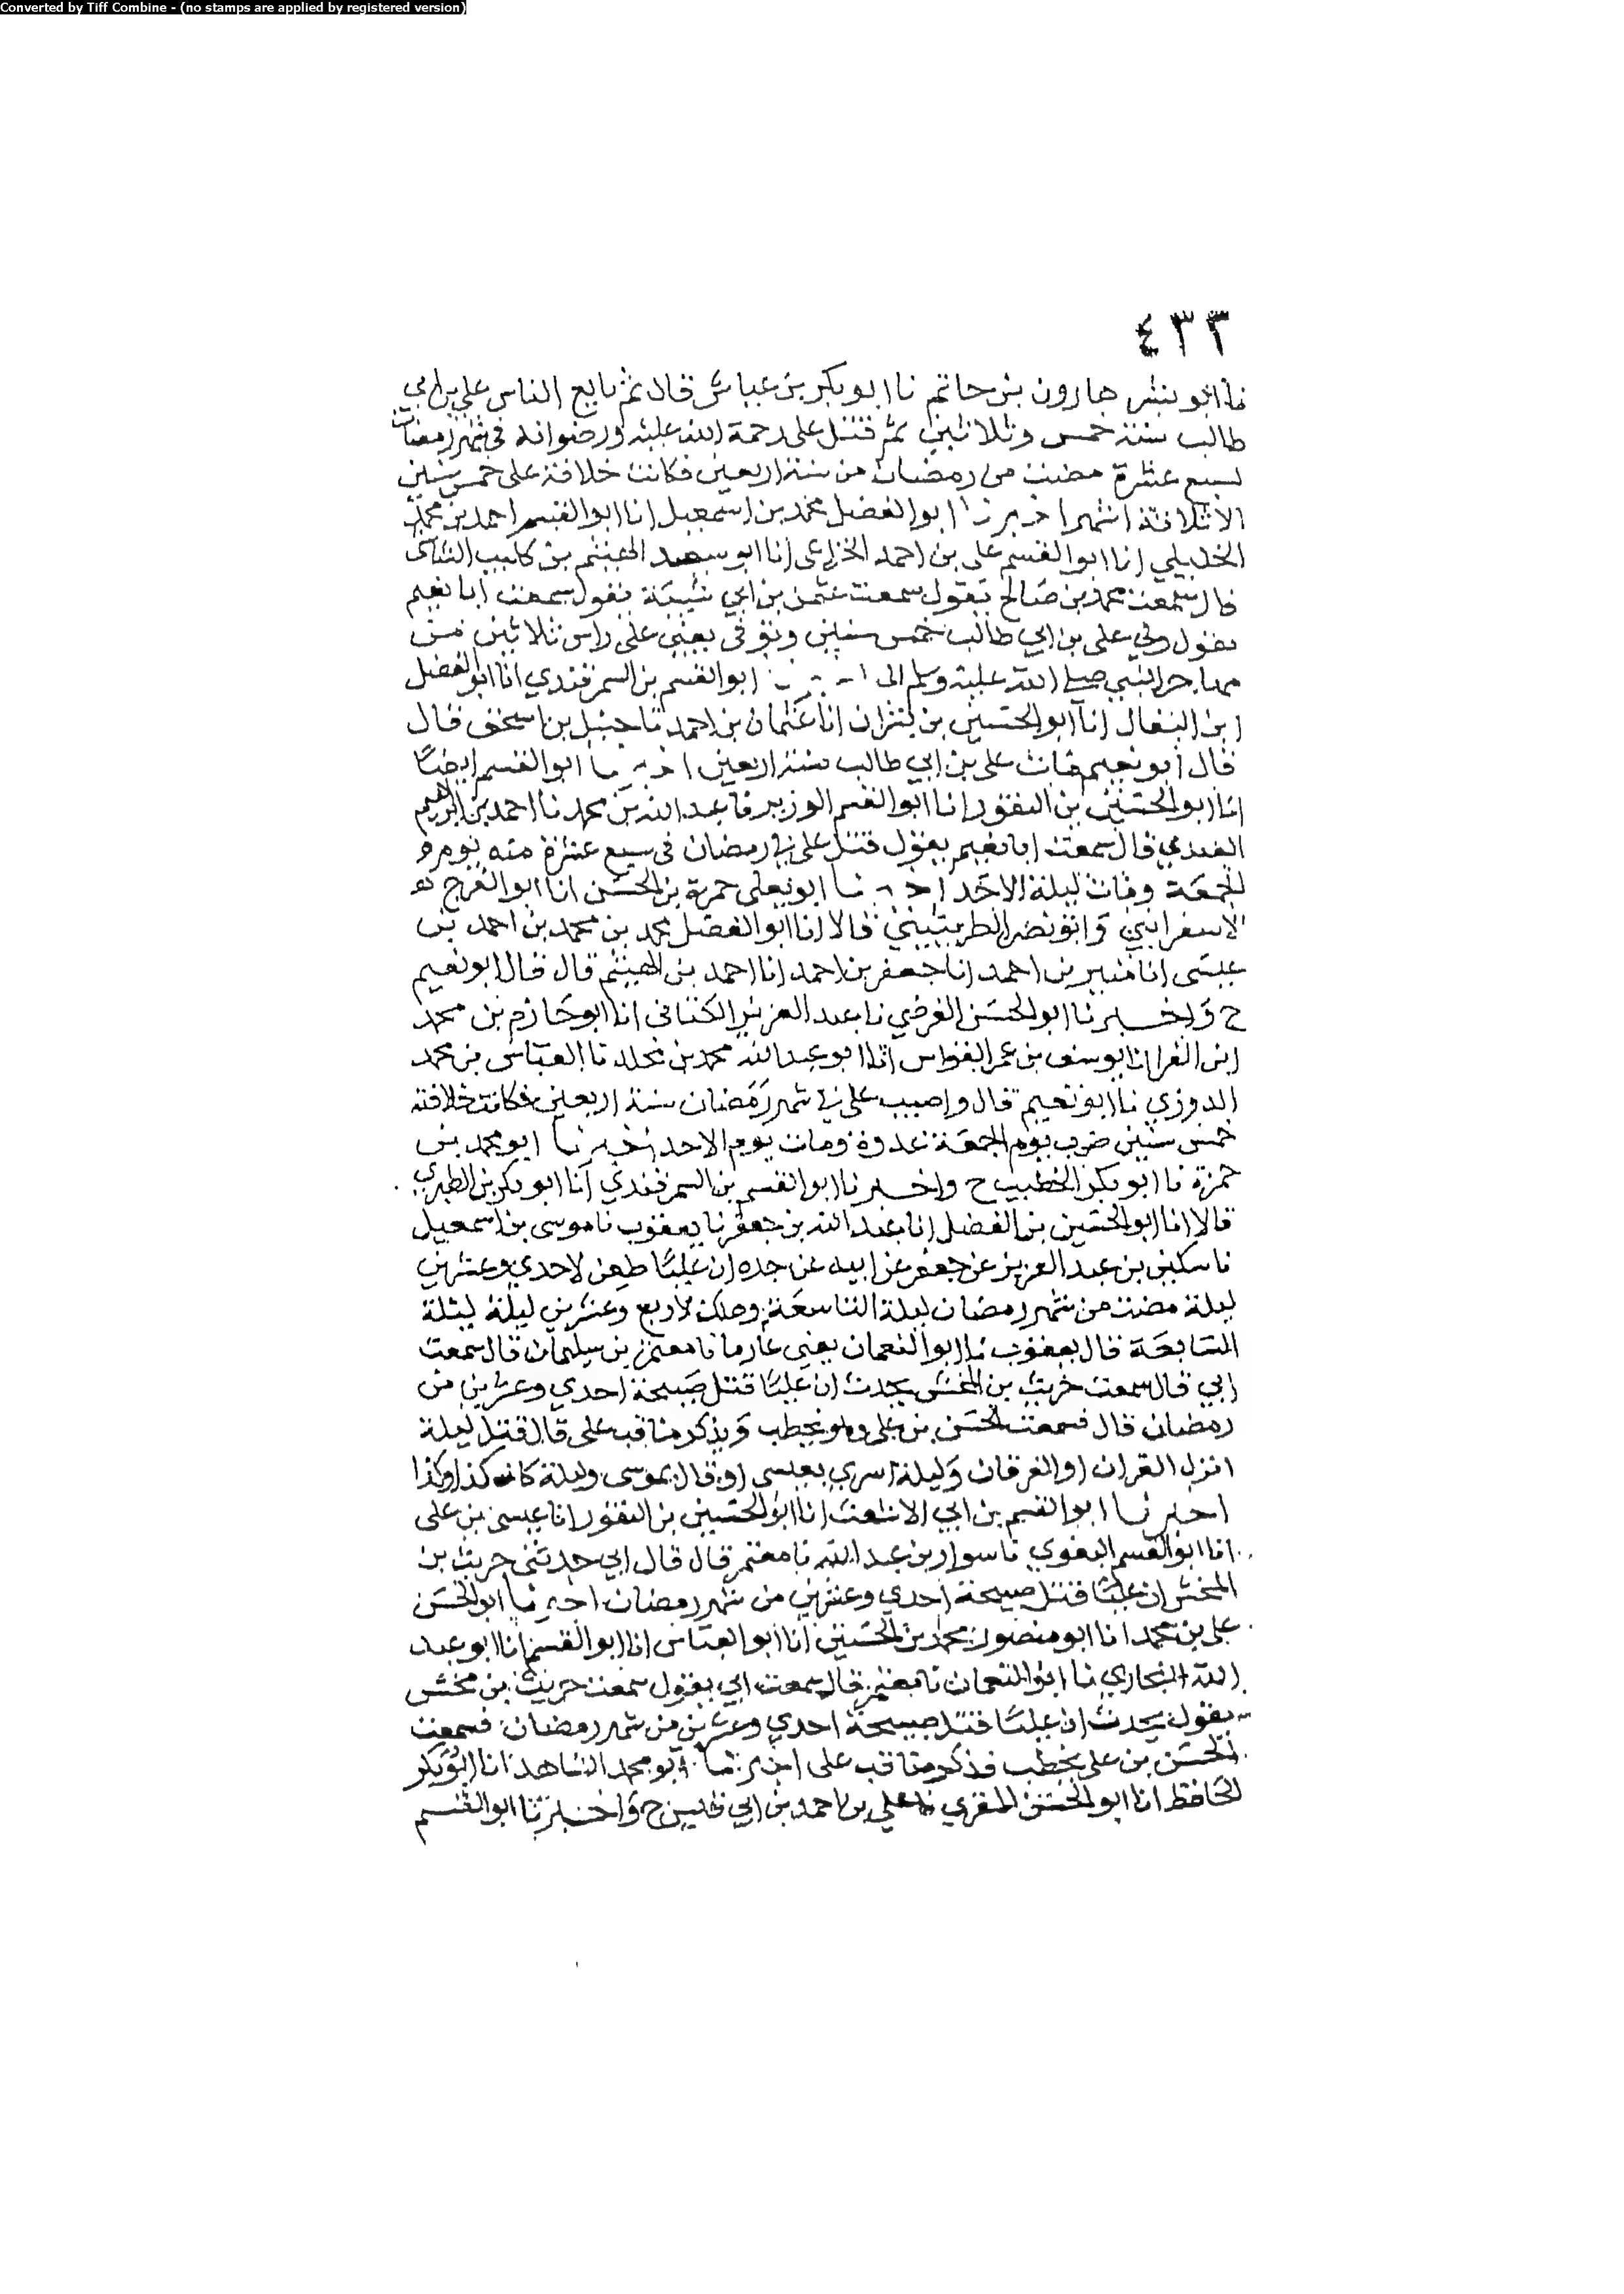 Converted by Tiff Combine - (no stamps are applied by registered version)
٤٣٣
نا ابو بشر هارون بن حاتم نا ابو بكر بن عياش قال ثم بايع الناس علي بن ابي
طالب سنة خمس وثلاثين ثم قتل على رحمة الله عليه ورضوانه فى شهر رمضان
لسبع عشرة مضت من رمضان من سنة اربعين فكانت خلافة على خمس سنين
الا ثلاثة اشهر اخبرنا ابو الفضل محمد بن اسمعيل انا ابو القسم احمد بن محمد
الخليلي انا ابو القسم على بن احمد الخزاعى انا ابو سعيد الهيثم بن كليب الشاشى
قال سمعت محمد بن صالح يقول سمعت عثمن بن ابي شيبة يقول سمعت ابا نعيم
يقول ولي على بن ابي طالب خمس سنين وتوفى يعنى على راس ثلاثين من
مهاجر النبي صلى الله عليه وسلم ابو القسم بن السمرقندي انا ابو الفضل
ابن البقال انا ابو الحسين بن بشران انا عثمان بن احمد نا حنبل بن اسحق قال
قال ابو نعيم مات على بن ابي طالب سنة اربعين اخبرنا ابو القسم ايضًا
انا ابو الحسين بن النقور انا ابو القسم الوزير نا عبد الله بن محمد نا احمد بن ابرهيم
العبدي قال سمعت ابا نعيم يقول قتل على في رمضان فى سبع عشرة منه يوم
الجمعة ومات ليلة الاحد اخبرنا ابو يعلى حمزة بن الحسن انا ابو الفرج
الاسفرايني وابو نصر الطريثيثي قالا انا ابو الفضل محمد بن محمد بن احمد بن
عيسى انا منير بن احمد انا جعفر بن احمد انا احمد بن الهيثم قال قال ابو نعيم
ح واخبرنا ابو الحسن الفرضي نا عبد العزيز الكتانى انا ابو خازم بن محمد
ابن الفرا نا يوسف بن عمر القواس انا ابو عبد الله محمد بن مخلد نا العباس بن محمد
الدوري نا ابو نعيم قال واصيب على في شهر رمضان سنة اربعين فكانت خلافته
خمس سنين ضرب يوم الجمعة غدوة ومات يوم الاحد اخبرنا ابو محمد بن
حمزة نا ابو بكر الخطيب ح واخبرنا ابو القسم بن السمرقندي انا ابو بكر بن الطبري
قالا انا ابو الحسين بن الفضل انا عبد الله بن جعفر نا يعقوب نا موسى بن اسمعيل
نا سكين بن عبد العزيز عن جعفر عن ابيه عن جده ان عليًا طعن لاحدي وعشرين
ليلة مضت من شهر رمضان ليلة التاسعة وهلك لاربع وعشرين ليلة ليلة
السابعة قال يعقوب نا ابو النعمان يعنى عارما نا معتمر بن سليمان قال سمعت
ابي قال سمعت حريث بن المخش يحدث ان عليًا قتل صبيحة احدي وعشرين من
رمضان قال فسمعت الحسن بن على وهو يخطب ويذكر مناقب على قال قتل ليلة
انزل القران او الفرقان وليلة اسري بعيسى او قال بموسى وليلة كان كذا وكذا
اخبرنا ابو القسم بن ابي الاشعث انا ابو الحسين بن النقور انا عيسى بن على
انا ابو القسم البغوي نا سوار بن عبد الله نا معتمر قال قال ابي حدثنى حريث بن
المخش ان عليًا قتل صبيحة احدي وعشرين من شهر رمضان اخبرنا ابو الحسن
على بن محمد انا ابو منصور محمد بن الحسين انا ابو العباس انا ابو القسم انا ابو عبد
الله البخاري نا ابو النعمان نا معتمر قال سمعت ابي يقول سمعت حريث بن مخش
يقول يحدث ان عليًا قتل صبيحة احدي وعشرين من شهر رمضان فسمعت
الحسن بن على يخطب فذكر مناقب على اخبرنا ابو محمد الشاهد انا ابو بكر
الحافظ انا ابو الحسن المقري نا علي بن احمد بن ابي قيس ح واخبرنا ابو القسم